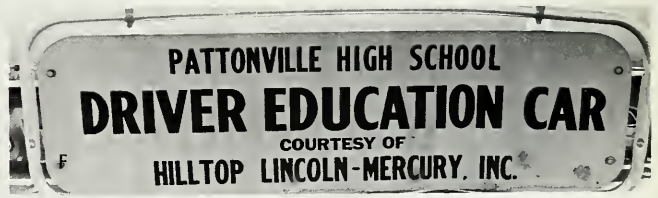 PATTONVILLE HIGH SCHOOL
DRIVER EDUCATION CAR
COURTESY OF
HILLTOP LINCOLN-MERCURY, INC.